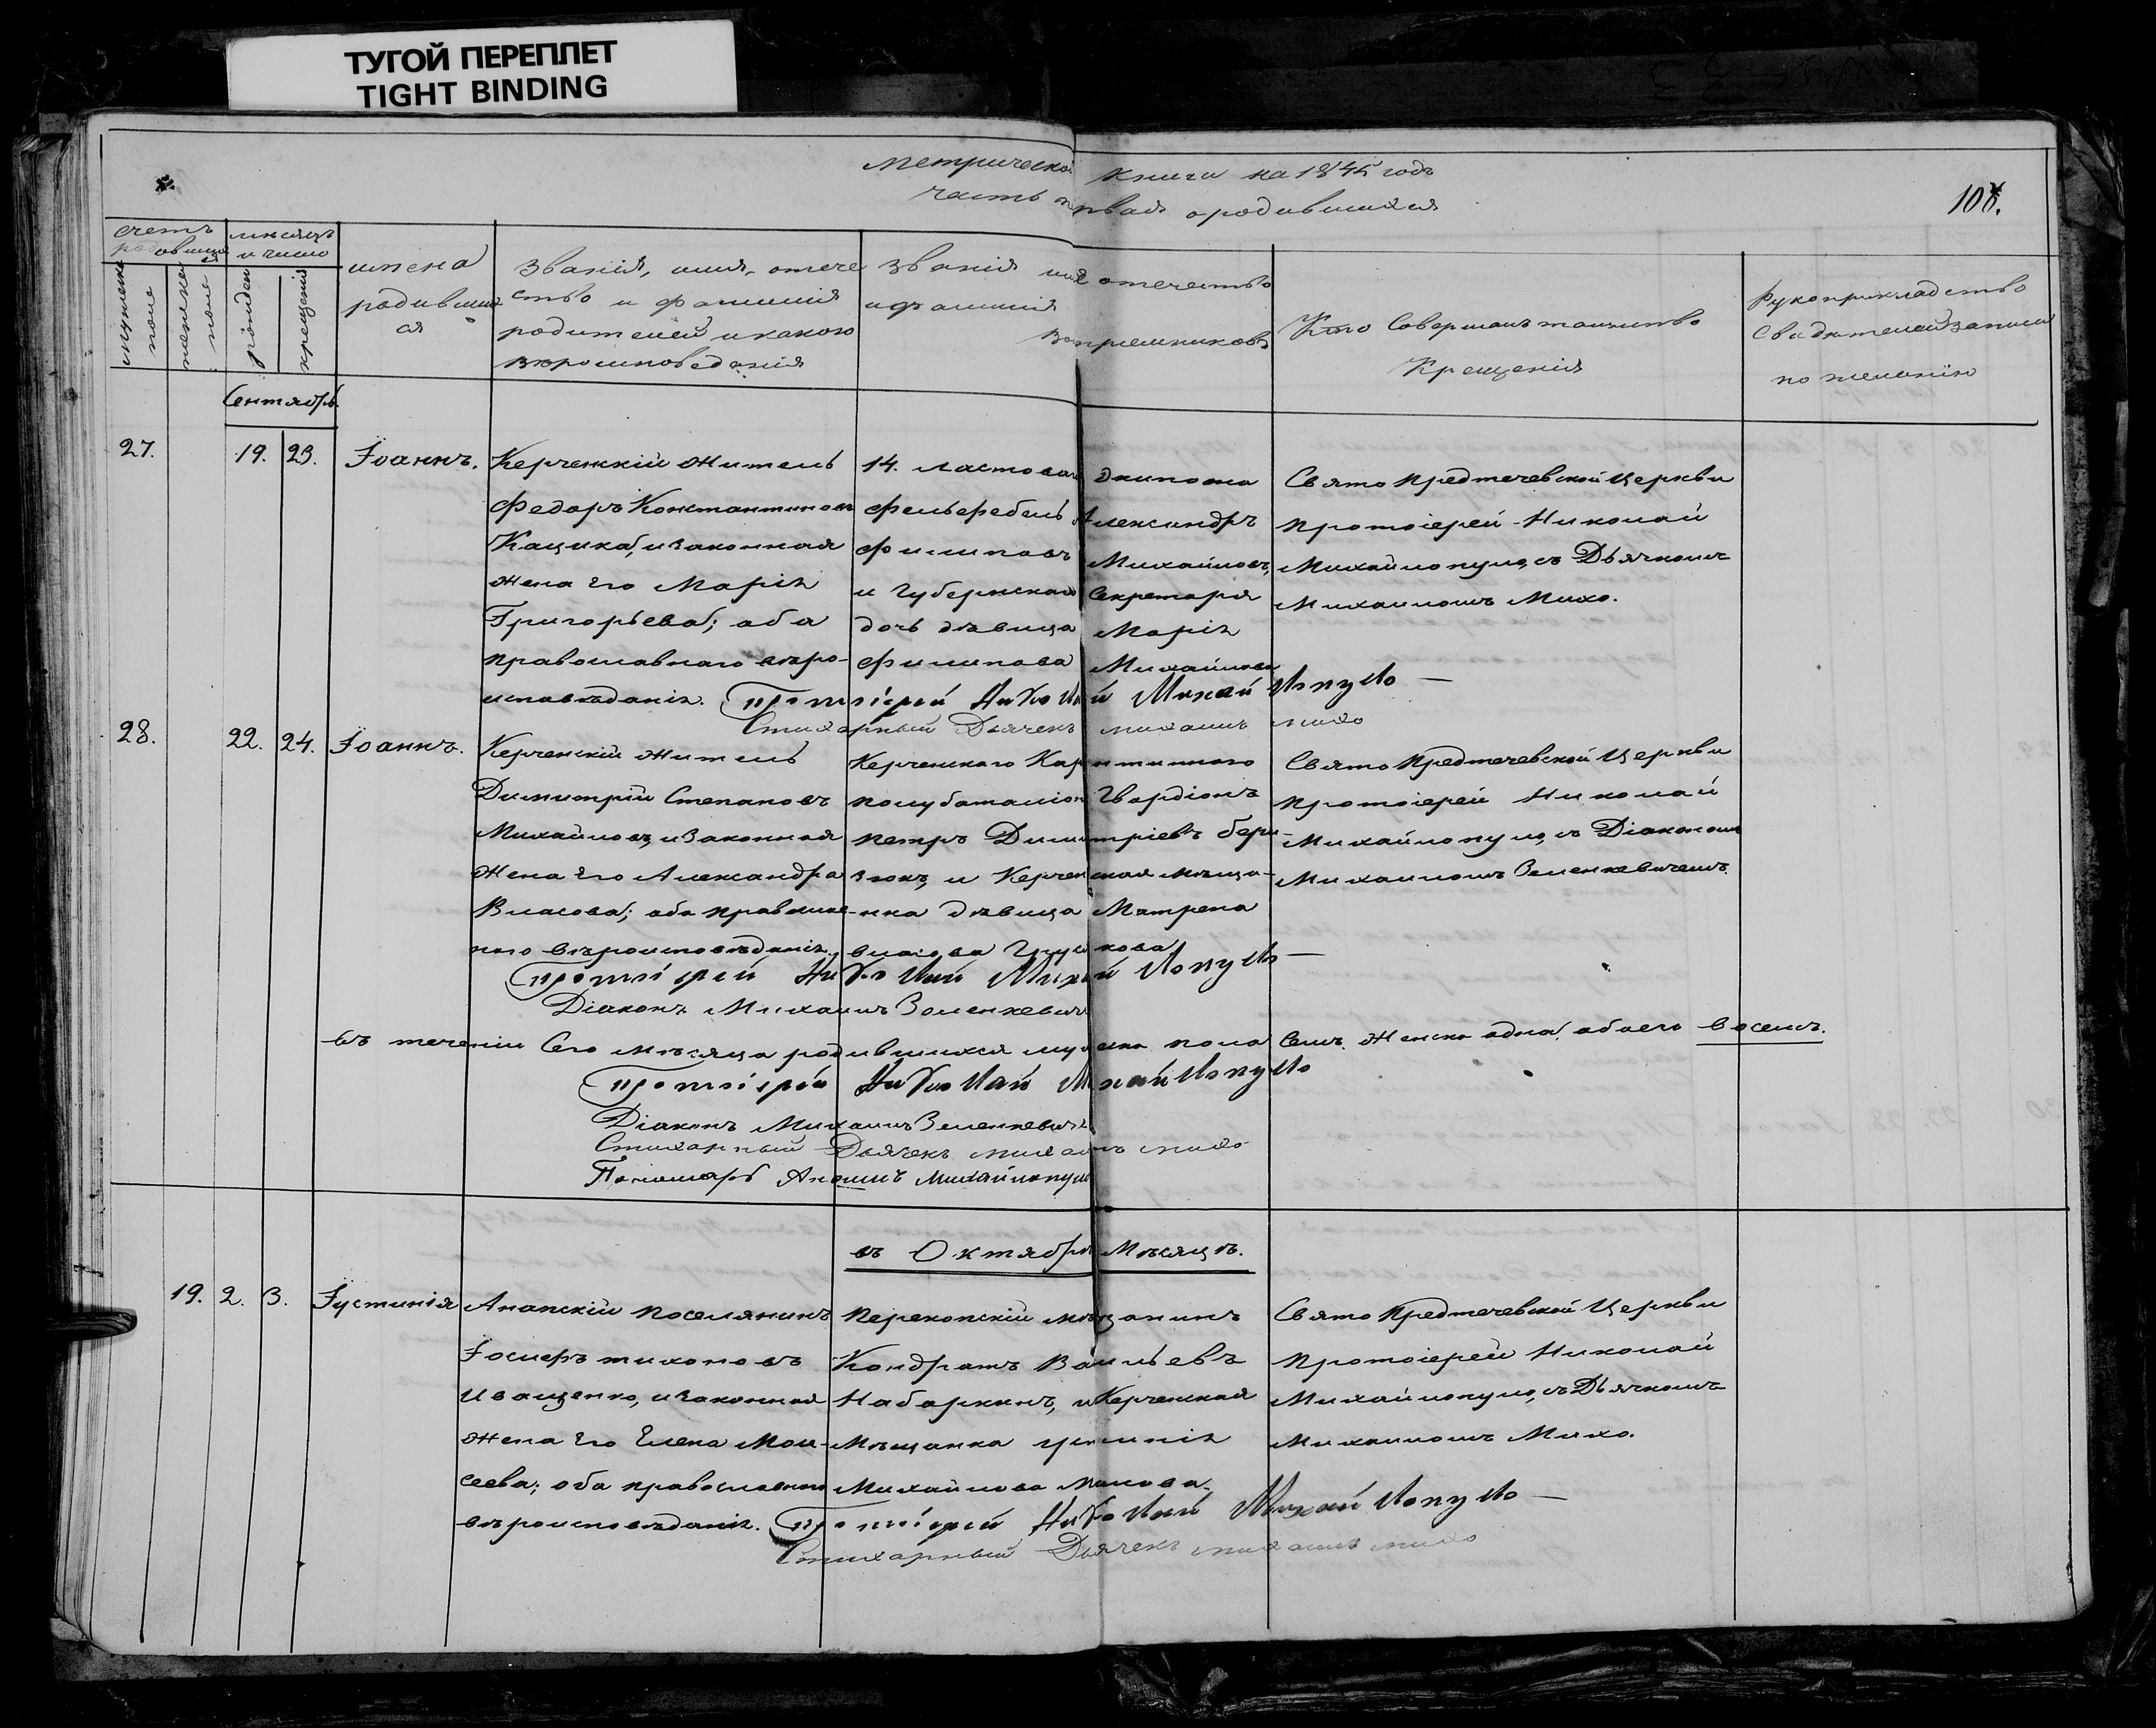 ТУГОЙ ПЕРЕПЛЕТ
TIGHT BINDING
Метрической книги на 1845 годъ
часть первая о родившихся
108.
счетъ родившихся
мѣсяцъ и число
мужеска пола
женска пола
рожден
крещенія
имена
родивших
ся
Званія, имя, отече
ство и фамилія
родителей и какого
вѣроисповеданія
Званія имя отечество
и фамилія
воспремниковъ
Кто Совершалъ таинство
Крещенія
Рукоприкладство
Свидѣтелей записи
по желанію
Сентябрь
27. 19. 23. Іоаннъ.
Керченскій житель
Федоръ Константиновъ
Кацика, и законная
жена Его Марія
Григорьева; оба
православнаго вѣро-
исповѣданія.
14. ластоваго Экипажа
фельдфебель Александръ
Филиповъ Михайловъ,
и Губернскаго Секретаря
дочь дѣвица Марія
Филипова Михайлова
Свято Предтечевской Церкви
Протоіерей Николай
Михайлопуло, съ Дьячкомъ
Михаиломъ Михо.
Протоіерей Николай Михайлопуло —
Стихарный Дьячекъ Михаилъ Михо
28. 22. 24. Іоаннъ.
Керченскій житель
Димитрій Степановъ
Михайловъ, и Законная
Жена Его Александра
Власова; оба православ-
наго вѣроисповѣданія,
Керченского Карантинного
полубаталіона Гвардіонъ
Петръ Димитріевъ Бери-
зюкъ, и Керченская мѣща-
нка дѣвица Матрена
Власова
Свято Предтечевской Церкви
Протоіерей Николай
Михайлопуло, съ Діакономъ
Михаиломъ Зеленкевичемъ.
Протоіерей Николай Михайлопуло —
Діаконъ Михаилъ Зеленкевичъ
въ теченіи Сего мѣсяца родившихся мужеска пола Семь. Женска одна, обоего восемь.
Протоіерей Николай Михайлопуло
Діаконъ Михаилъ Зеленкевичъ
Стихарный Дьячекъ Михаилъ Михо
Пономарь Михайлопуло
въ Октябрѣ Мѣсяцѣ.
19. 2. 3. Іустинія
Анапскій поселянинъ
Іосифъ Тихоновъ
Иващенко, и законная
жена Его Елена Мои-
сеева; оба православнаго
вѣроисповѣданія.
Перекопскій мѣщанинъ
Кондратъ Васильевъ
Набаркинъ, и Керченская
Мѣщанка
Михайлова
Свято Предтечевской Церкви
Протоіерей Николай
Михайлопуло, съ Дьячкомъ
Михаиломъ Михо.
Протоіерей Николай Михайлопуло —
Стихарный Дьячекъ Михаилъ Михо